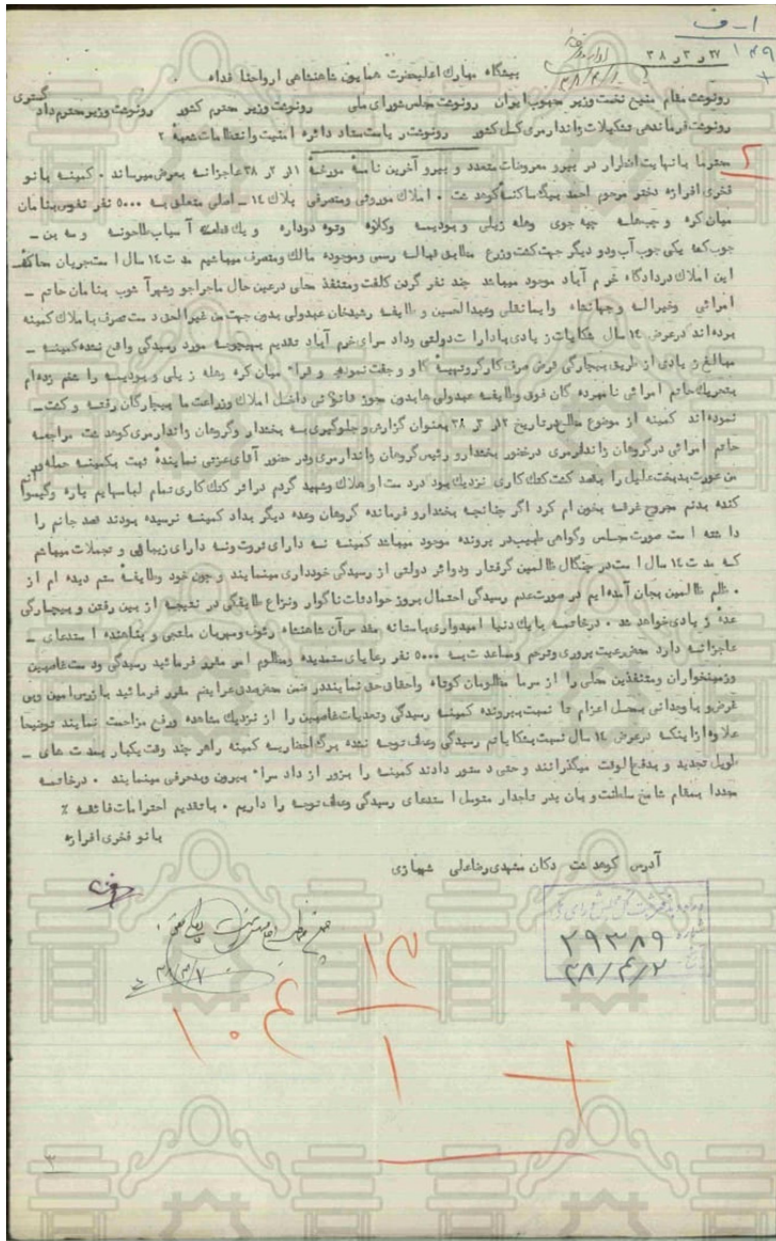 ۱ـ ف
۱۴۹
۲۷ ر ۳ ر ۳۸
پیشگاه مبارک اعلیحضرت همایون شاهنشاهی ارواحنا فداه
رونوشت مقام منیع نخست وزیر محبوب ایران رونوشت مجلس شورای ملی رونوشت وزیر محترم کشور رونوشت وزیر محترم دادگستری
رونوشت فرماندهی تشکیلات ژاندارمری کل کشور رونوشت ریاست ستاد دائره امنیت وانتظامات شعبه ۲
۲
محترما با نهایت اضطرار در پیرو معروضات متعدد و پیرو آخرین نامه مورخه ۱ر ۲ر ۳۸ عاجزانه بعرض میرساند . کمینه بانو
فخری افرازه دختر مرحوم احمد بیگ ساکنه کوهدشت . املاک موروثی ومتصرفی پلاک ۱۴ ـ اصلی متعلق به ۵۰۰۰ نفر نفوس بنامان
میان کره و چیه جوی وهله زیلی و بودیسه وکلاوه وتوه دوداره و یک قطعه آسیاب طاحونه و سه بن ـ
جوب که یکی جوب آب ودو دیگر جهت کشت وزرع مطابق قباله رسمی وموجوده مالک ومتصرف میباشیم مدت ۱۴ سال است جریان محاکمه
این املاک در دادگاه خرم آباد موجود میباشد چند نفر گردن کلفت ومتنفذ محلی درعین حال ماجراجو وشرآشوب بنامان حاتم ـ
امرائی وخیراله و جهانشاه وایمانقلی وعبدالحسین و طایفه رشیدخان عبدولی بدون جهت من غیرالحق دست تصرف باملاک کمینه
برده اند درعرض ۱۴ سال شکایات زیادی بادارات دولتی وداد سرای خرم آباد تقدیم بهیچوجه مورد رسیدگی واقع نشده کمینه ـ
مبالغ زیادی از طریق بیچارگی قرض صرف کارگر وتهیه گاو و جفت نموده و قراء میان کره وهله زیلی و بودیسه را شخم زده ام
بتحریک حاتم امرائی نامبرده گان فوق وطایفه عبدولی ها بدون مجوز قانونی داخل املاک وزراعت ما بیچارگان رفته و کشت ـ
نموده اند کمینه از موضوع مطلع درتاریخ ۲ر ۳ر ۳۸ بعنوان گزارش وجلوگیری به بخشدار وگروهان ژاندارمری کوهدشت مراجعه
حاتم امرائی درگروهان ژاندارمری درحضور بخشدار و رئیس گروهان ژاندارمری ودر حضور آقای عزتی نماینده ثبت بکمینه حمله ور
من عورت بدبخت علیل را بقصد کشت کتک کاری نزدیک بود درد ست او هلاک وشهید گردم دراثر کتک کاری تمام لباسهایم پاره وگیسوانم
کنده بدنم مجروح غرقه بخون ام کرد اگر چنانچه بخشدار و فرمانده گروهان وعده دیگر بداد کمینه نرسیده بودند قصد جانم را
داشته است صورت مجلس وگواهی طبیب در پرونده موجود میباشد کمینه نه دارای ثروت ونه دارای زیبائی و تجملات میباشم
که مدت ۱۴ سال است در چنگال ظالمین گرفتار ودوائر دولتی از رسیدگی خودداری مینمایند و چون خود وطایفه ستم دیده ام از
ظلم ظالمین بجان آمده ایم در صورت عدم رسیدگی احتمال بروز حوادثات ناگوار ونزاع طایفگی در نتیجه از بین رفتن و بیچارگی
عده زیادی خواهد شد . درخاتمه با یک دنیا امیدواری باستانه مقدس آن شاهنشاه رئوف ومهربان ملتجی و پناهنده استدعای ـ
عاجزانه دارد محض رعیت پروری وترحم ومساعدت به ۵۰۰۰ نفر رعایای ستمدیده ومظلوم امر مقرر فرمائید رسیدگی ودست غاصبین
وزمینخواران ومتنفذین محلی را از سر ما مظلومان کوتاه واحقاق حق نمایند در ضمن عرایضم مقرر فرمائید بازرس امین وبی
غرض و با وجدانی بمحل اعزام تا نسبت بپرونده کمینه رسیدگی وتعدیات غاصبین را از نزدیک مشاهده ورفع مزاحمت نمایند توضیحا
علاوه از اینکه درعرض ۱۴ سال نسبت بشکایاتم رسیدگی وعطف توجه نشده برگ احضاریه کمینه راهر چند وقت یکبار بمدت های ـ
طویل تجدید و بدفع الوقت میگذرانند و حتی دستور دادند کمینه را بزور از داد سراء بیرون وبدحرفی مینمایند . درخاتمه
مجددا بمقام شامخ سلطنت و بان پدر تاجدار متوسل استدعای رسیدگی وعطف توجه را داریم . باتقدیم احترامات فائقه ٪
بانو فخری افرازه
آدرس کوهدشت دکان مشهدی رضاعلی شهبازی
۲۹۳۸۹
۳۸/۴/۲
۳۸/۳/۷
۱۳
۱
۱۰۴
۳